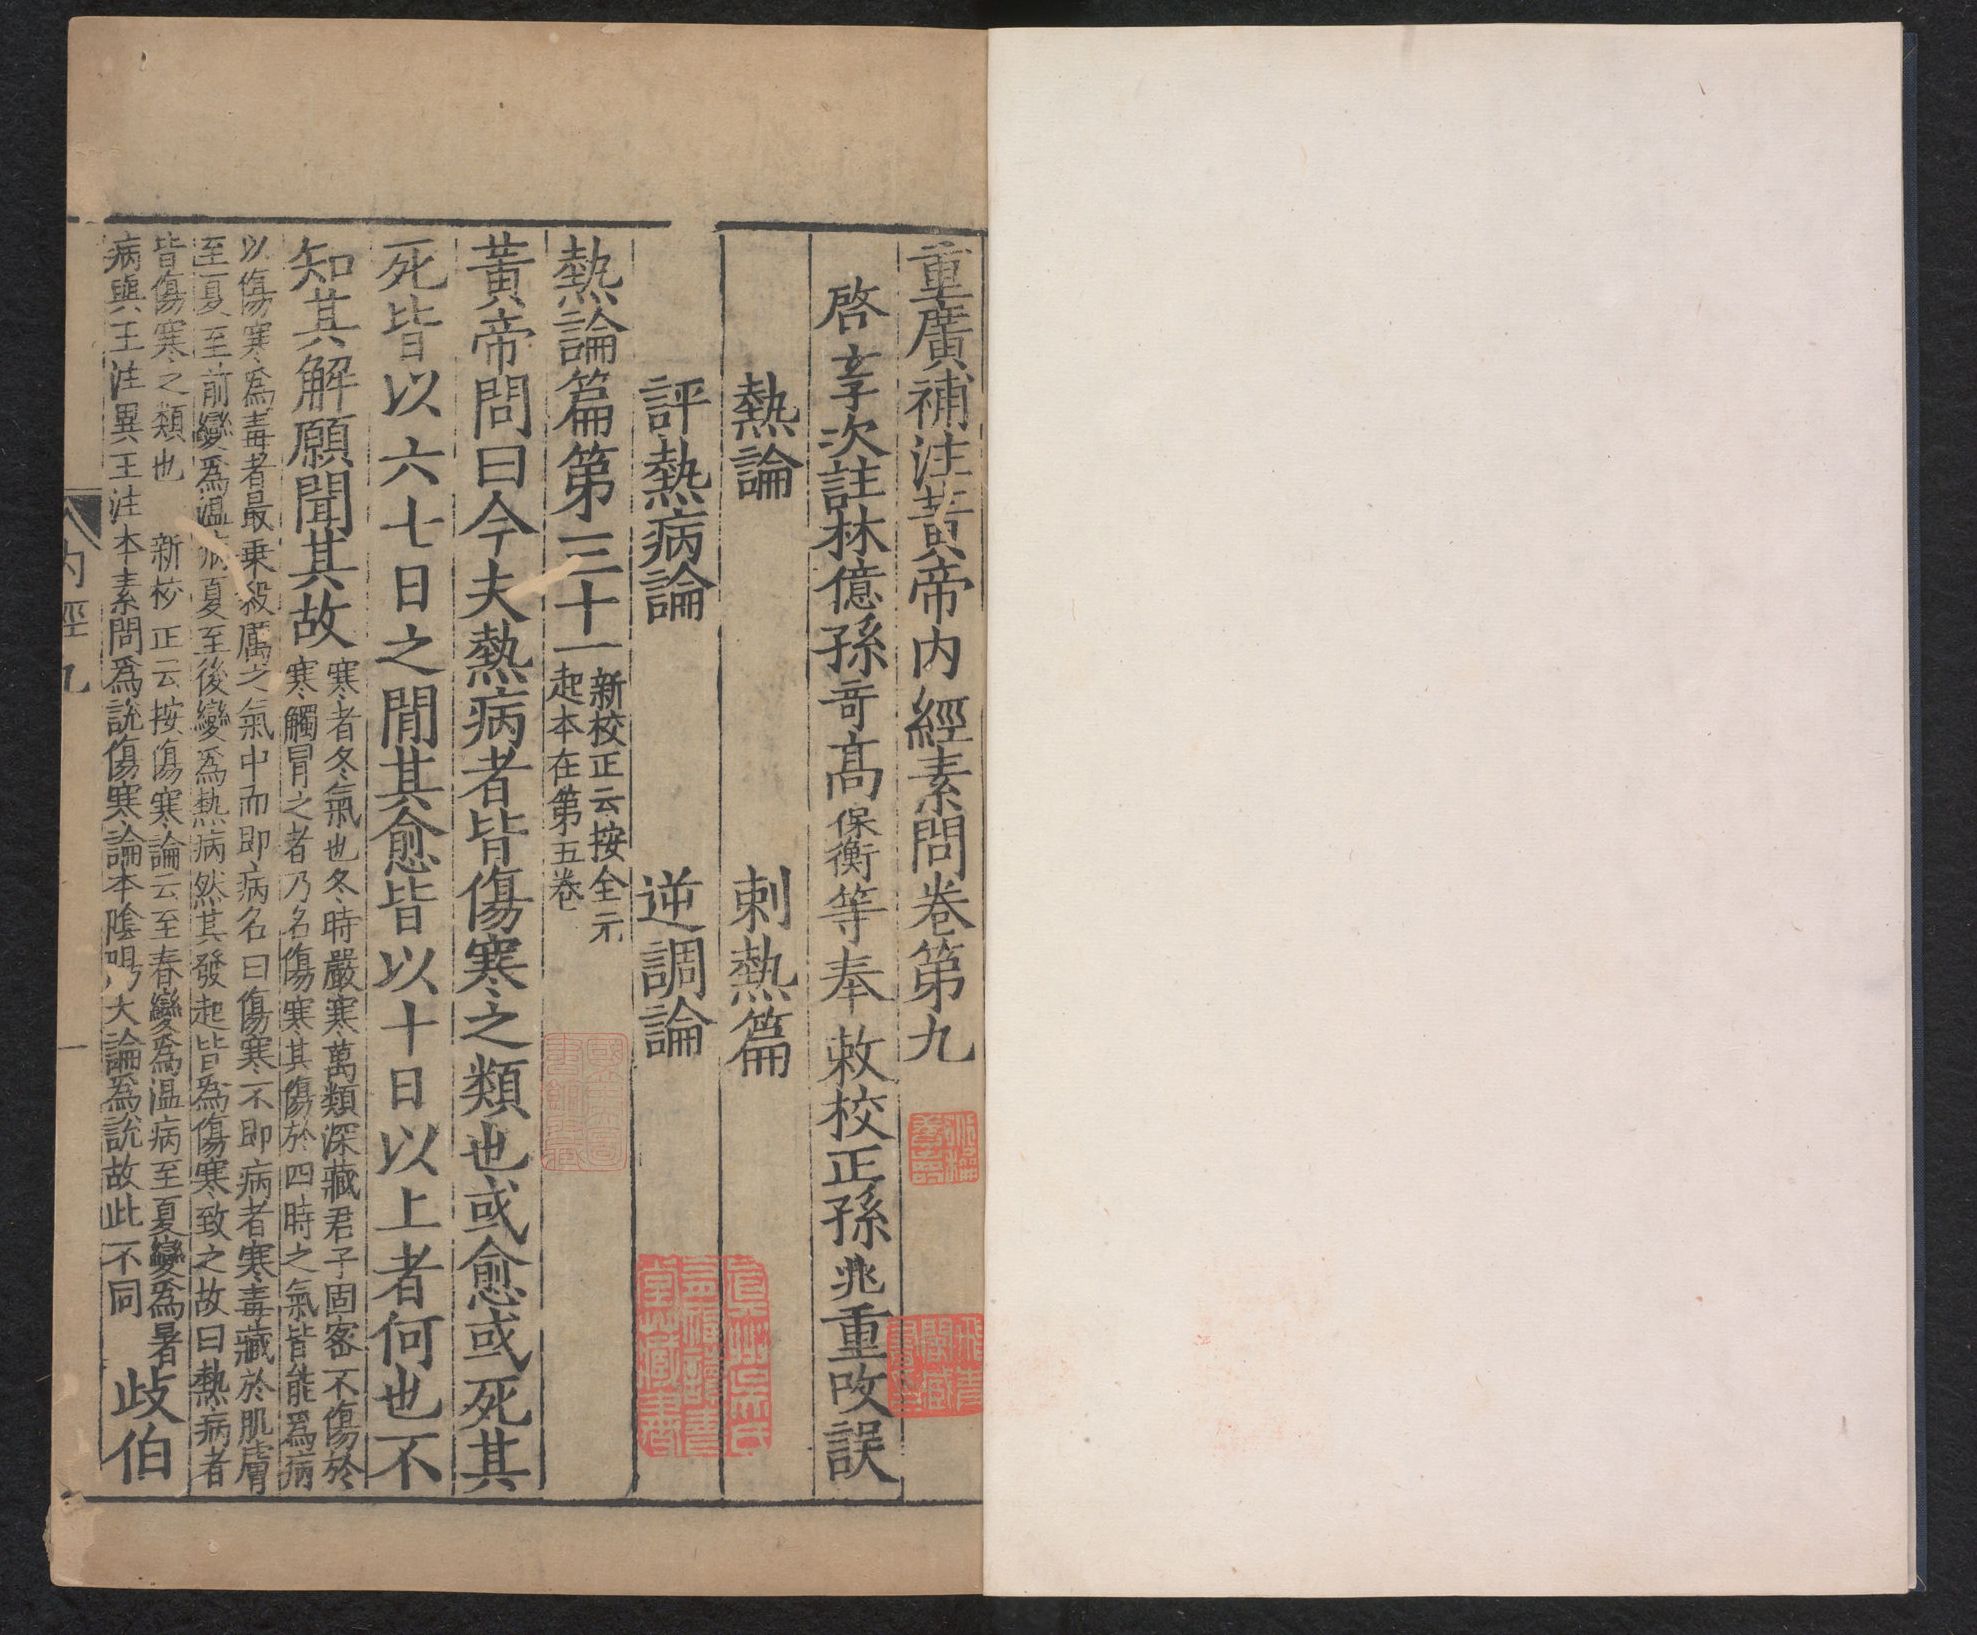 重廣補注黃帝内經素問卷第九
啓玄子次註林億孫奇高保衡等奉敕校正孫兆重改誤
熱論　刺熱篇
評熱病論　逆調論
熱論篇第三十一新校正云按全元
起本在第五卷
黃帝問曰今夫熱病者皆傷寒之類也或愈或死其
死皆以六七日之閒其愈皆以十日以上者何也不
知其解願聞其故寒者冬氣也冬時嚴寒萬類深藏君子固密不傷於
寒觸冒之者乃名傷寒其傷於四時之氣皆能爲病
以傷寒爲毒者最乗殺厲之氣中而即病名曰傷寒不即病者寒毒藏於肌膚
至夏至前變爲温病夏至後變爲熱病然其發起皆爲傷寒致之故曰熱病者
皆傷寒之類也　新校正云按傷寒論云至春變爲温病至夏變爲暑
病與王注異王注本素問爲說傷寒論本陰陽大論爲說故此不同　歧伯
内經九
一